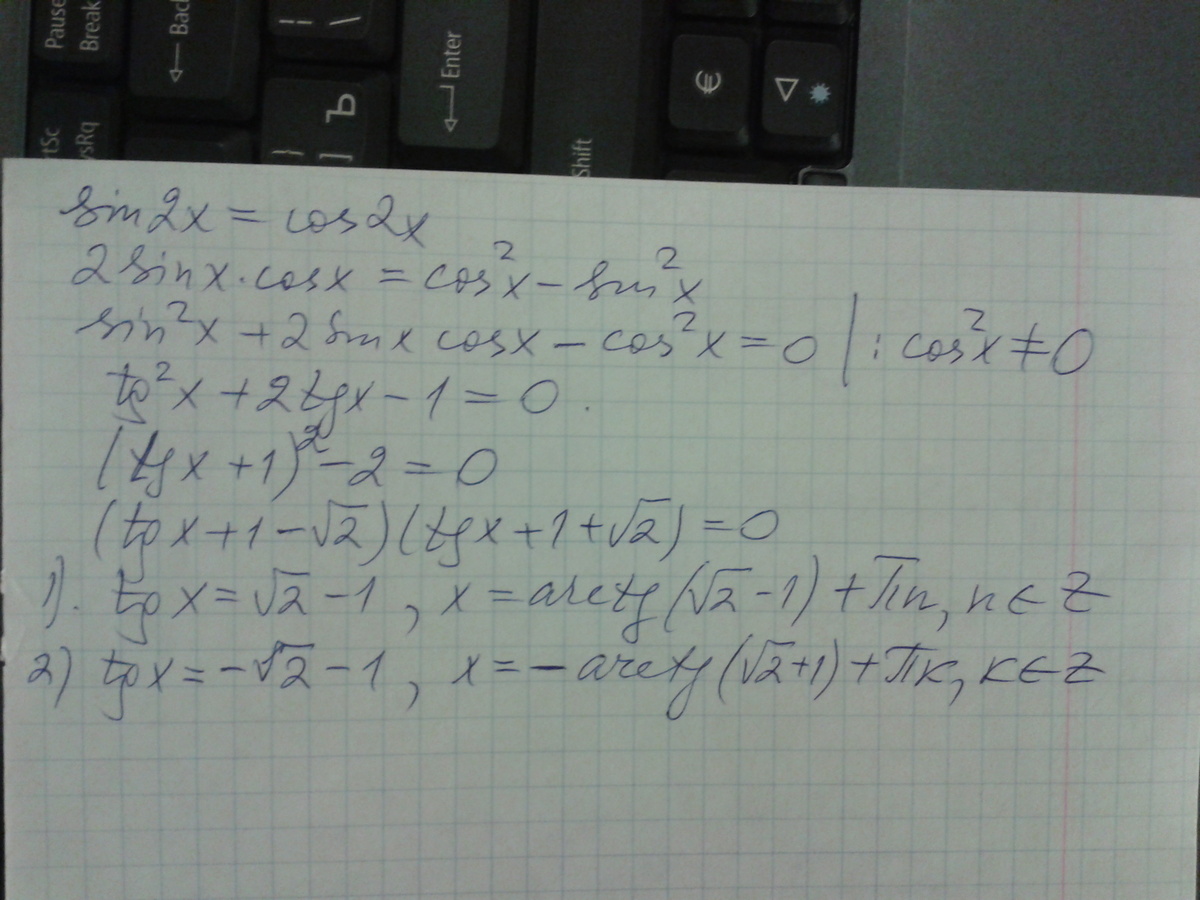 Pause Break
← Back
| \
← Enter
€
PrtSc
SysRq
} ] Ъ
Shift
sin2x = cos2x
2sinx·cosx = cos²x − sin²x
sin²x + 2sinx cosx − cos²x = 0 | : cos²x ≠ 0
tg²x + 2tgx − 1 = 0.
(tgx + 1)² − 2 = 0
(tgx + 1 − √2)(tgx + 1 + √2) = 0
1). tgx = √2 − 1, x = arctg(√2 − 1) + πn, n ∈ Z
2) tgx = −√2 − 1, x = − arctg(√2+1) + πк, к ∈ Z